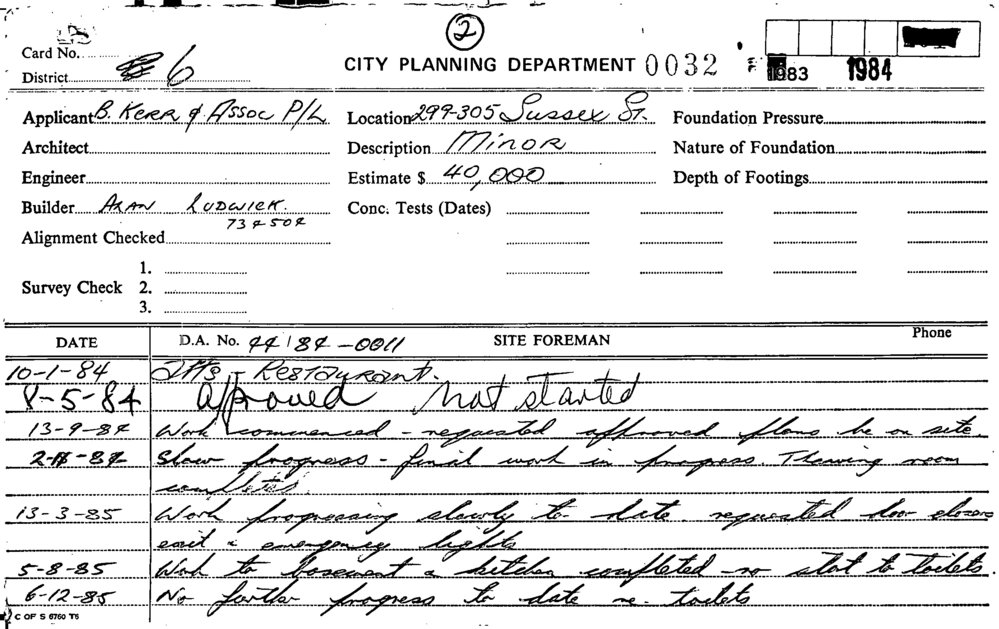 2
Card No.
District 6
CITY PLANNING DEPARTMENT 0032
1983 1984
Applicant B. KERR & ASSOC P/L Location 299-305 SUSSEX ST. Foundation Pressure
Architect Description MINOR Nature of Foundation
Engineer Estimate $ 40,000 Depth of Footings
Builder ALAN LUDWICK. Conc. Tests (Dates)
734504
Alignment Checked
1.
Survey Check 2.
3.
DATE D.A. No. 44/84-0011 SITE FOREMAN Phone
10-1-84 - RESTAURANT.
8-5-84 Approved Not started
13-9-84 Work commenced - requested approved plans be on site.
Slow progress - final work in progress. room
completed.
13-3-85 Work progressing slowly to date. requested door closers
exit & emergency lights
5-8-85 Work to basement & kitchen completed - no start to toilets.
6-12-85 No further progress to date re. toilets
C OF S 6760 T6